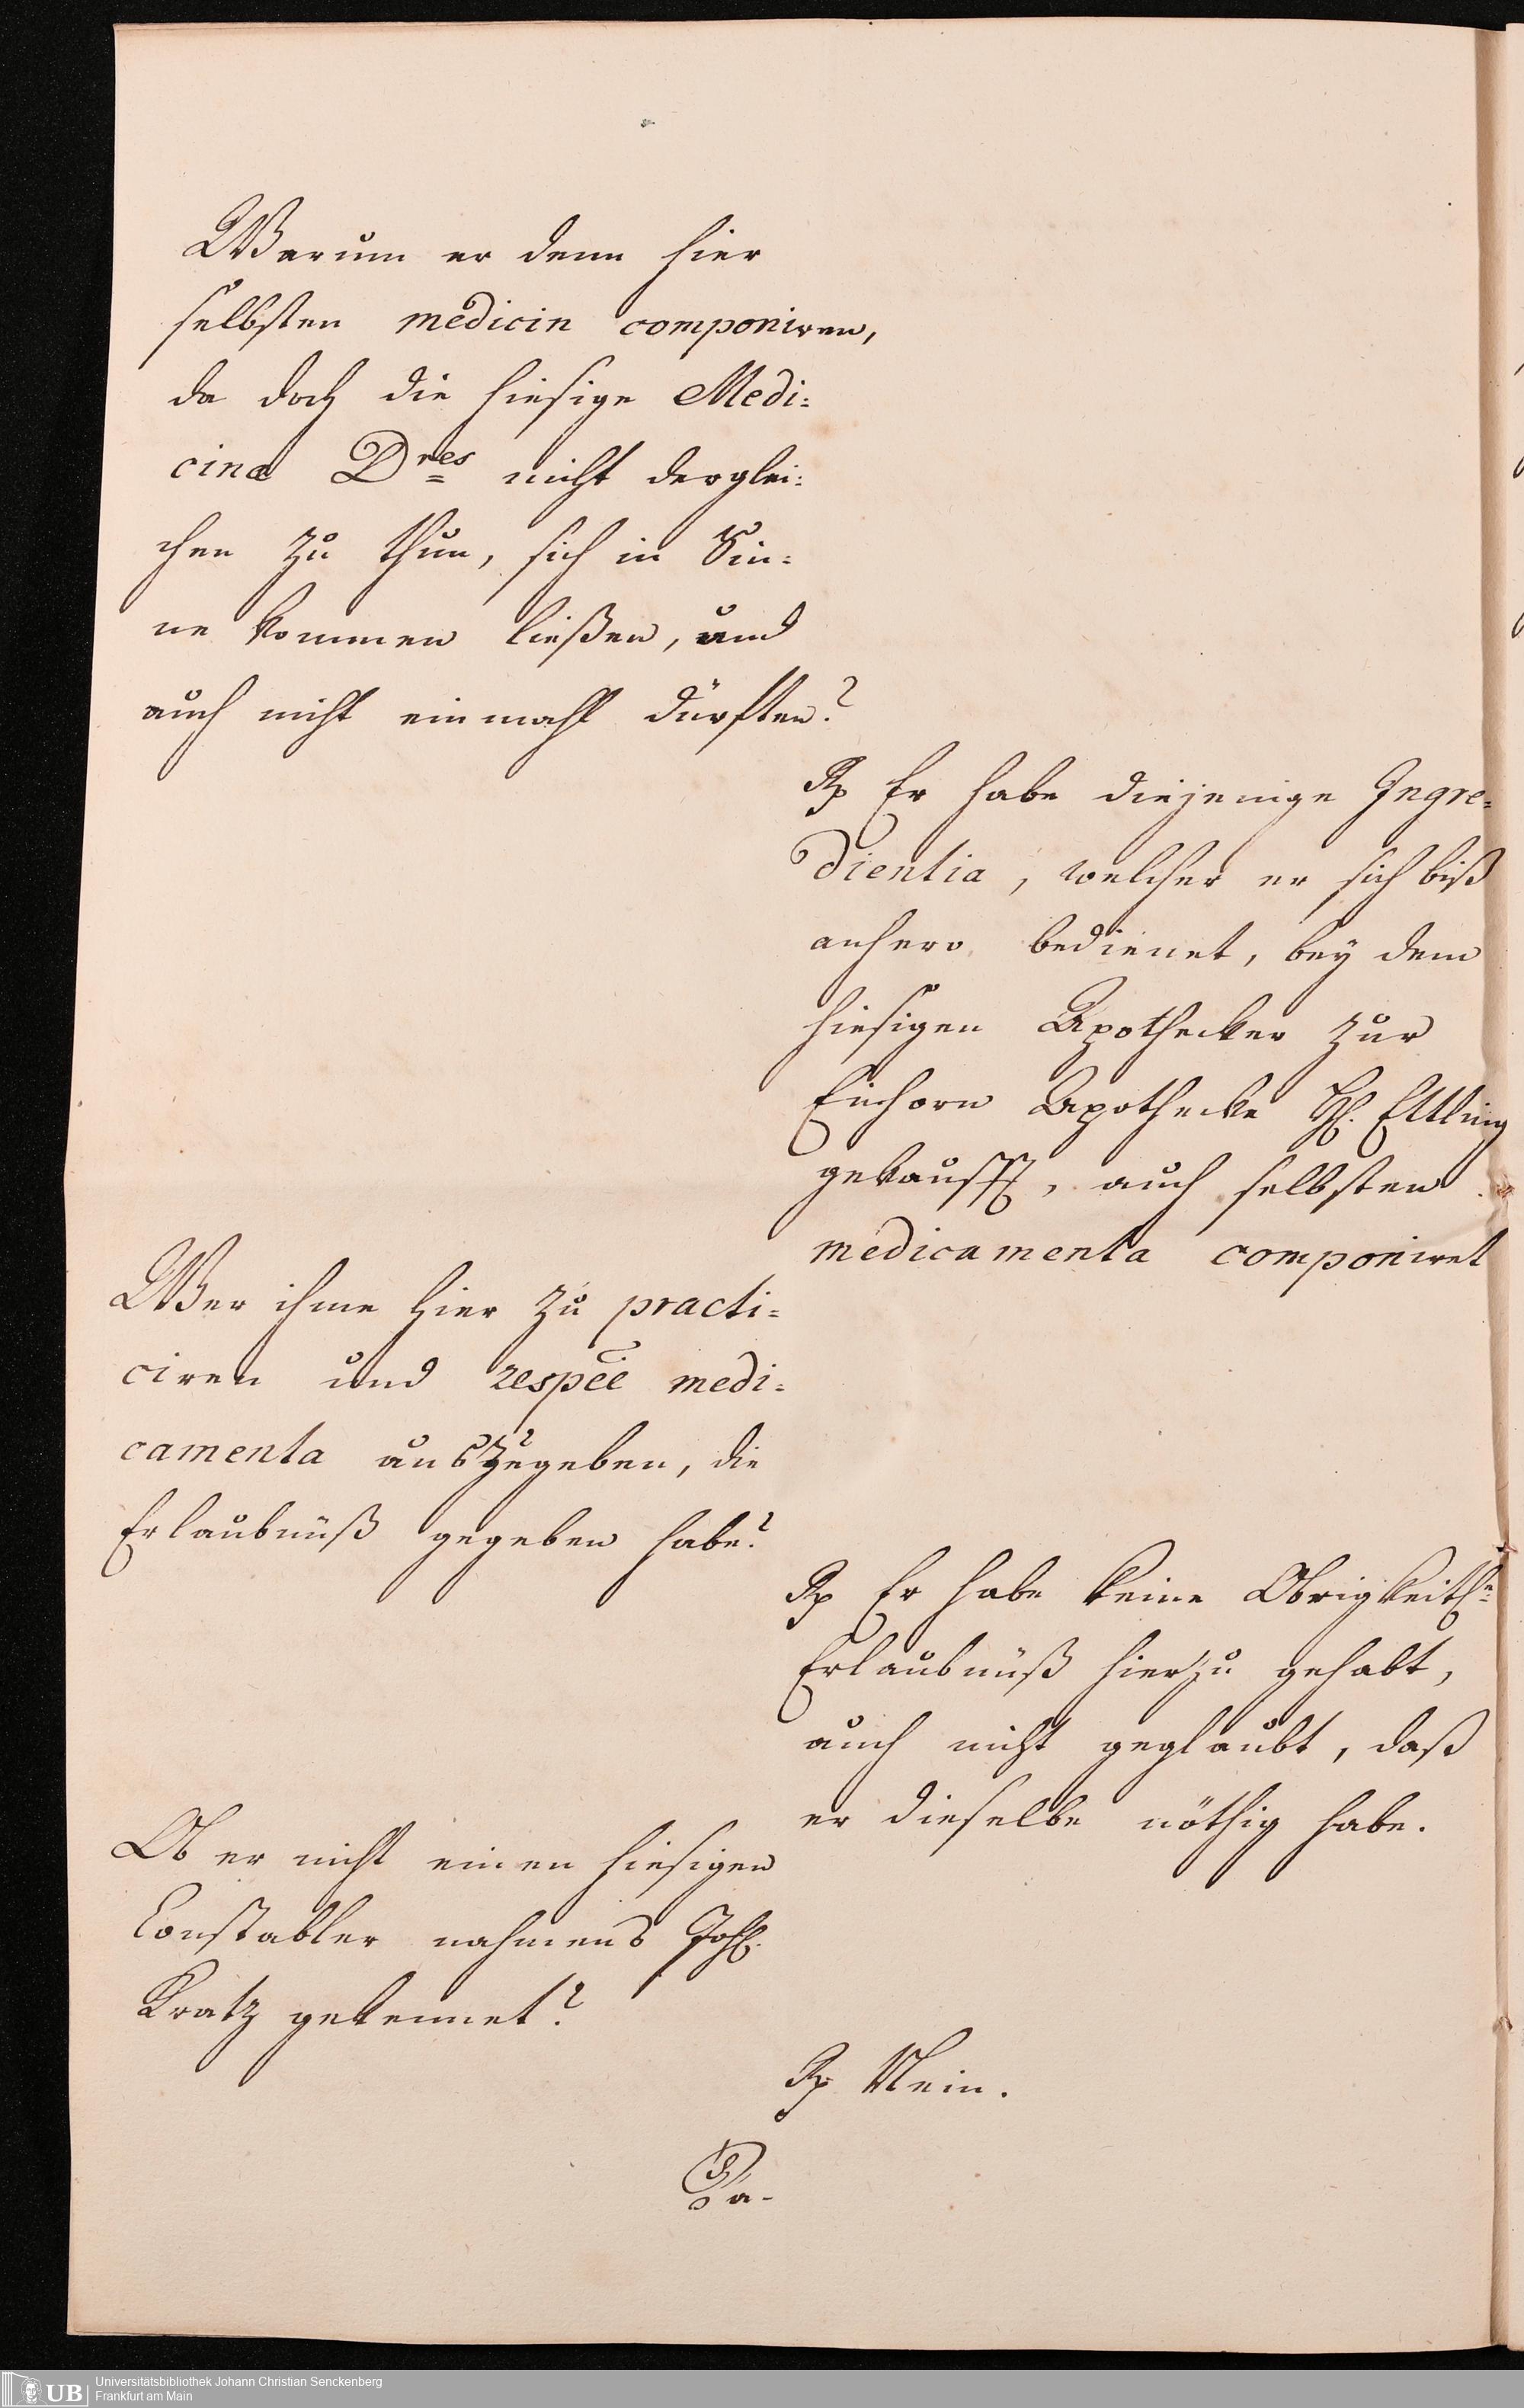 Warum er denn hier
selbsten medicin componiren,
da doch die hiesige Medi=
cinæ Dres nicht derglei=
chen zu thun, sich in Sin=
ne kommen ließen, und
auch nicht einmahl dürften?
Rp Er habe diejenige Ingre=
dientia, welcher er sich biß
anhero bedienet, bey dem
hiesigen Apothecker zur
Einhorn Apothecke H. Ettling
gekaufft, auch selbsten
medicamenta componiret
Wer ihme hier zu practi=
ciren und respée medi=
camenta auszugeben, die
Erlaubnüß gegeben habe?
Rp Er habe keine Obrigkeitl.
Erlaubnüß hierzu gehabt,
auch nicht geglaubt, daß
er dieselbe nöthig habe.
Ob er nicht einen hiesigen
Constabler nahmens Joh.
Kratz gekennet?
Rp Nein.
Da-
UB Universitätsbibliothek Johann Christian Senckenberg
Frankfurt am Main